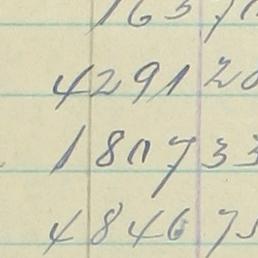 4291 20
1807 33
4846 75